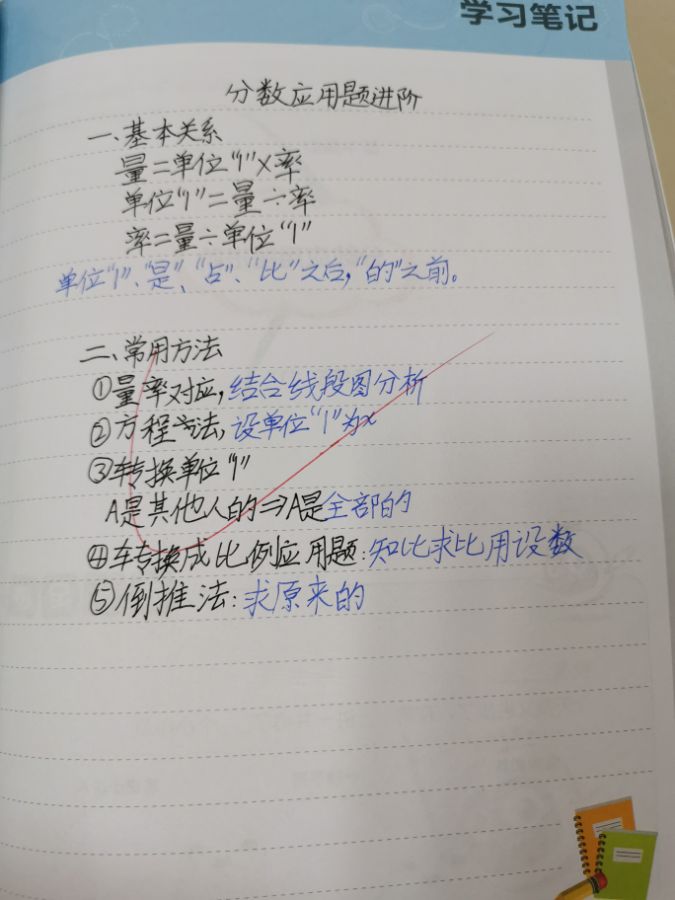 学习笔记
分数应用题进阶
一、基本关系
量=单位“1”×率
单位“1”=量÷率
率=量÷单位“1”
单位“1”、“是”、“占”、“比”之后，“的”之前。
二、常用方法
①量率对应，结合线段图分析
②方程方法，设单位“1”为x
③转换单位“1”
A是其他人的⇒A是全部的
④转换成比例应用题：知比求比用设数
⑤倒推法：求原来的